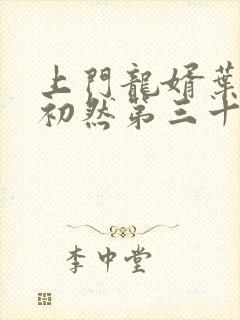 上門龍婿葉
初然第三十
李中堂